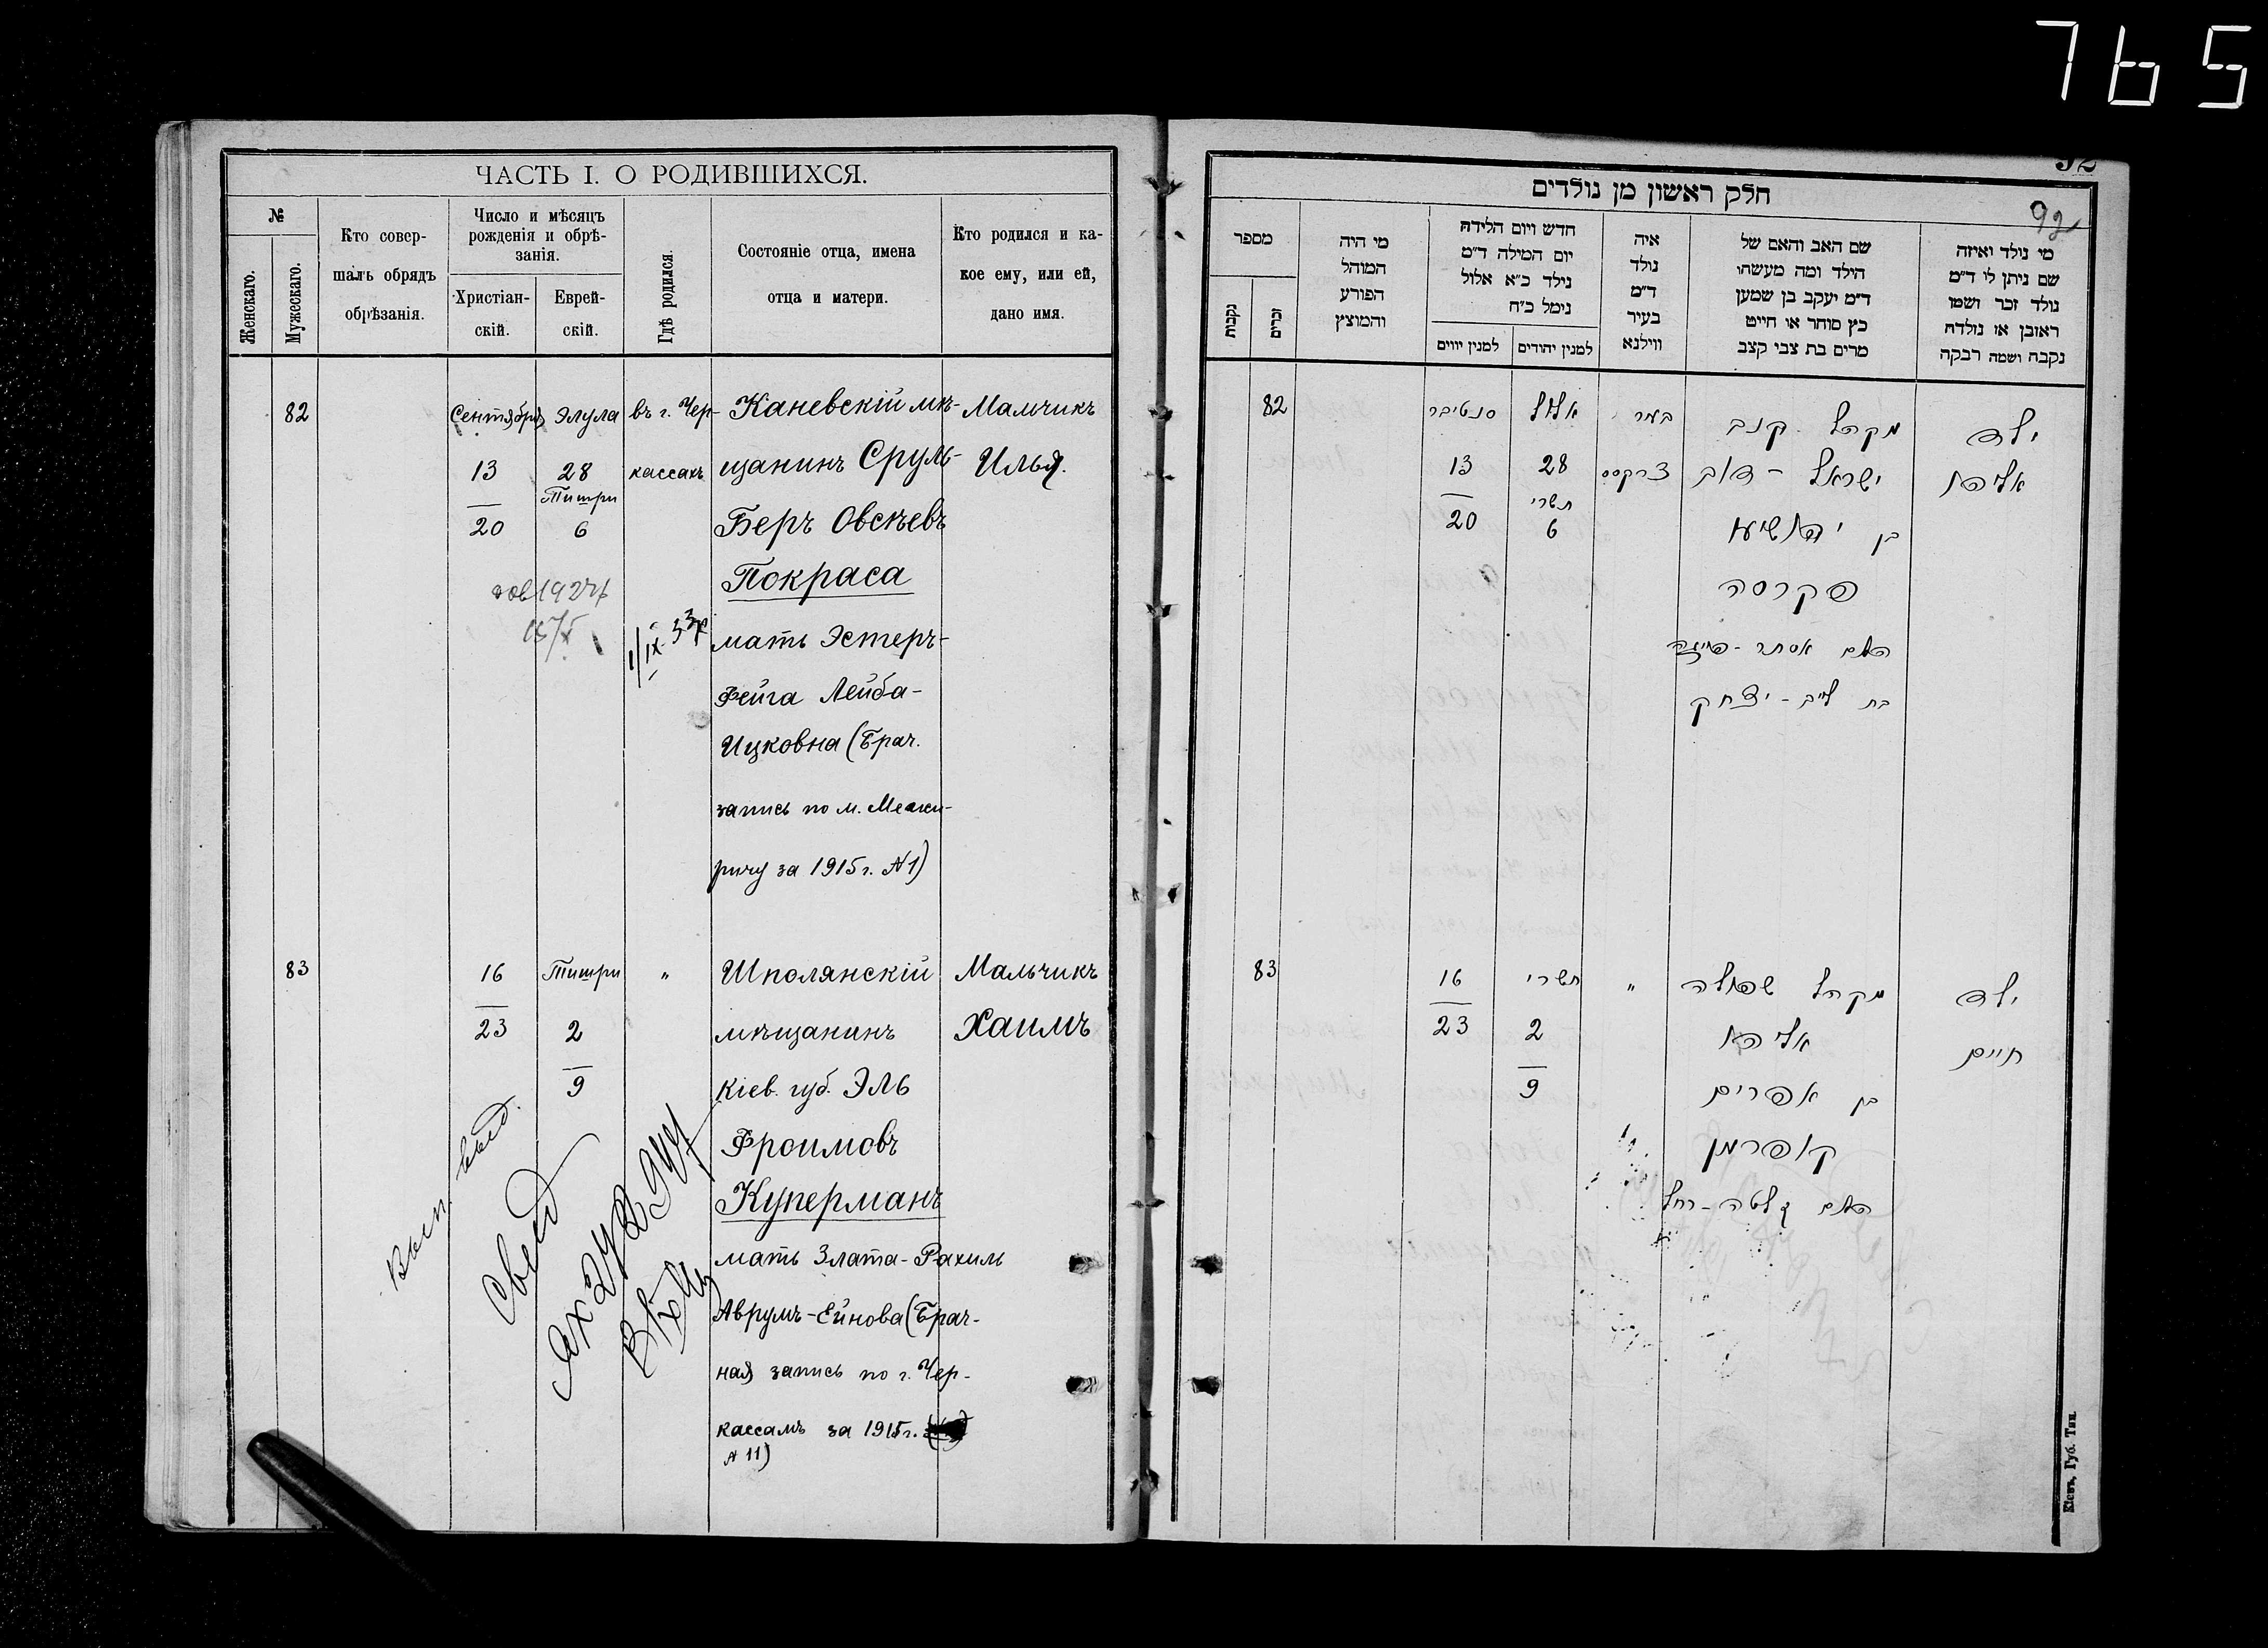 765
ЧАСТЬ I. О РОДИВШИХСЯ.
№
Женскаго.
Мужескаго.
Кто совер-
шалъ обрядъ
обрѣзанія.
Число и мѣсяцъ
рожденія и обрѣ-
занія.
Христіан-
скій.
Еврей-
скій.
Гдѣ родился.
Состояніе отца, имена
отца и матери.
Кто родился и ка-
кое ему, или ей,
дано имя.
82 Сентября Элула въ г. Чер- Каневскій мѣ- Мальчикъ
13 28 кассахъ щанинъ Сруль- Илья.
Тишри
20 6 Беръ Овсѣевъ
Покраса
1/IX 33
мать Эстеръ-
Фейга Лейба-
Ицковна (Брач.
запись по м. Межи-
ричу за 1915 г. №1)
83 16 Тишри " Шполянскій Мальчикъ
23 2 мѣщанинъ Хаимъ
9 Кіев. губ. Эль
Фроимовъ
Куперманъ
мать Злата-Рахиль
Аврумъ-Ейнова (Брач-
ная запись по г. Чер-
кассамъ за 1915 г.
№ 11)
Вып. выд.
חלק ראשון מן נולדים
92
מספר
נקבות
זכרים
מי היה
המוהל
הפורע
והמוצץ
חדש ויום הלידה
יום המילה ד״מ
נילד כ״א אלול
נימל כ״ח
למנין יווים
למנין יהודים
איה
נולד
ד״מ
בעיר
ווילנא
שם האב והאם של
הילד ומה מעשהו
ד״מ יעקב בן שמען
כץ סוחר או חייט
מרים בת צבי קצב
מי נולד ואיזה
שם ניתן לו ד״מ
נולד זכר ושמו
ראובן או נולדה
נקבה ושמה רבקה
82 סנטיבר אלול בעיר מקהל קנוב ילד
13 28 צרקסס ישראל - דוב אליהו
תשרי
20 6 בן יהושיע
פקרסה
האם אסתר - פייגה
בת לייב - יצחק
83 16 תשרי " מקהל שפולה ילד
23 2 אליהו חיים
9 בן אפרים
קופרמן
האם זלטה - רחל
Кіевъ, Губ. Тип.